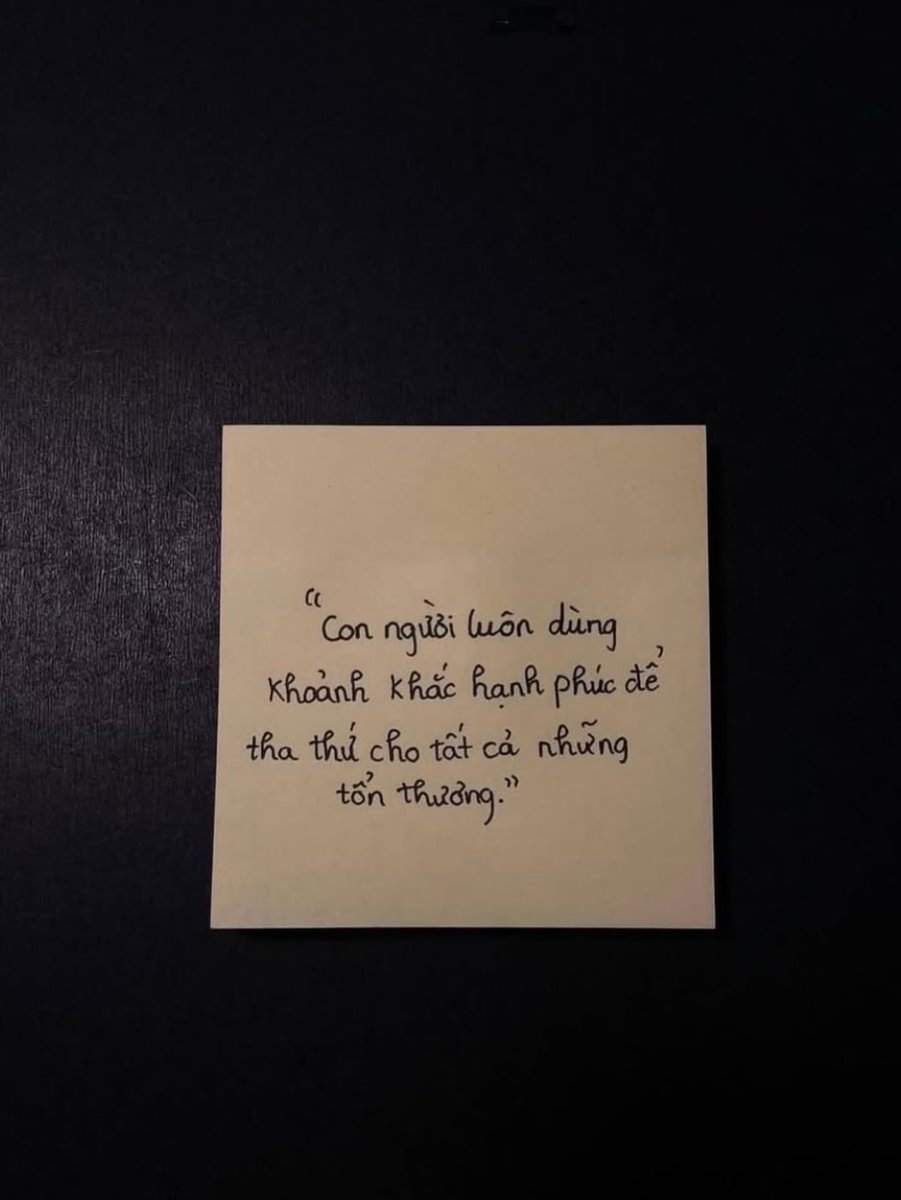 “Con người luôn dùng
khoảnh khắc hạnh phúc để
tha thứ cho tất cả những
tổn thương.”